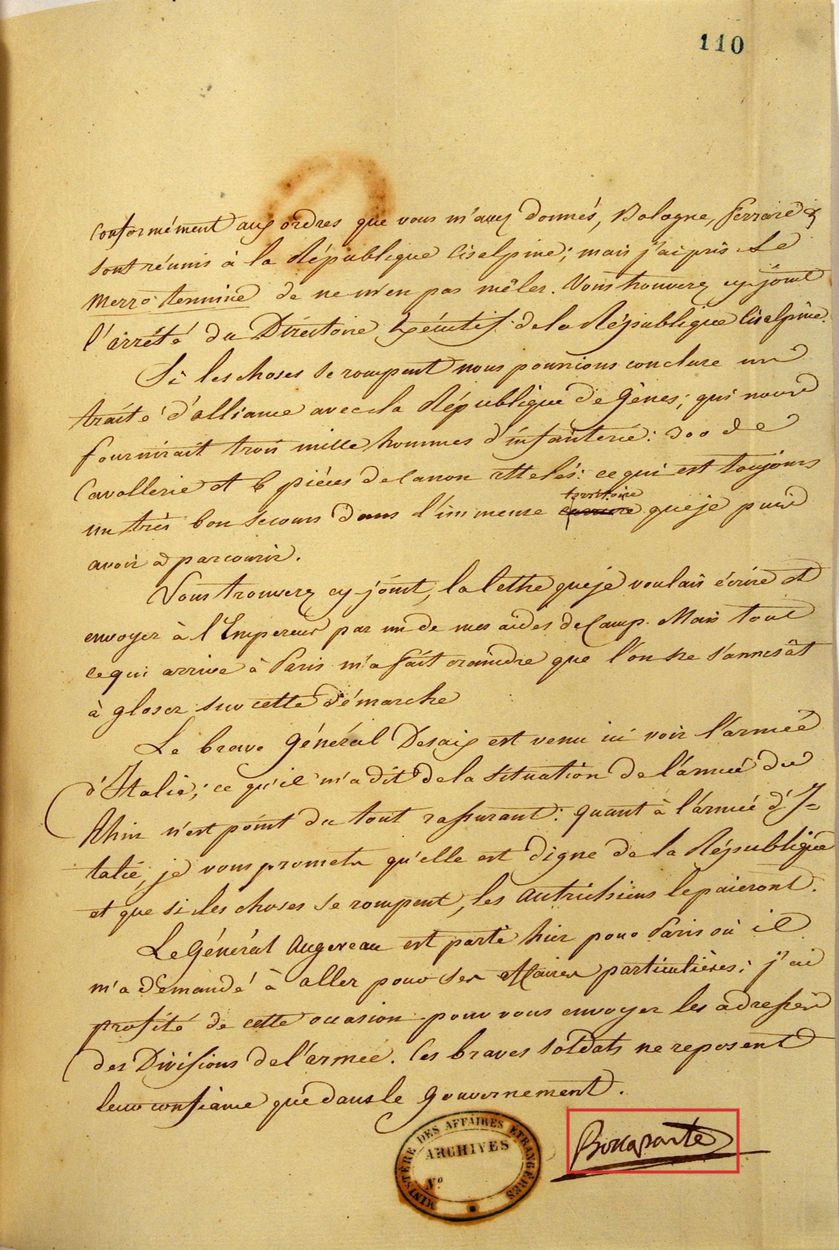 110
conformément aux ordres que vous m'avez donnés, Bologne, Ferrare &
sont réunis à la République Cisalpine; mais j'ai pris le
mezzo termine de ne m'en pas mêler. Vous trouverez cy-joint
l'arrêté du Directoire Exécutif de la République Cisalpine.
Si les choses se rompent nous pourrions conclure un
traité d'alliance avec la République de Gênes, qui nous
fournirait trois mille hommes d'infanterie: 300 de
Cavallerie et 6 pièces de canon attelés: ce qui est toujours
territoire
un très bon secours dans l'immense que je puis
avoir à parcourir.
Vous trouverez cy-joint, la lettre que je voulais écrire et
envoyer à l'Empereur par un de mes aides de Camp. Mais tout
ce qui arrive à Paris m'a fait craindre que l'on ne s'amusât
à gloser sur cette démarche
Le brave Général Desaix est venu ici voir l'armée
d'Italie; ce qu'il m'a dit de la situation de l'armée du
Rhin n'est point du tout rassurant: quant à l'armée d'I-
talie, je vous promets qu'elle est digne de la République
et que si les choses se rompent, les autrichiens le paieront.
Le Général Augereau est parti hier pour Paris où il
m'a demandé à aller pour ses affaires particulières; j'ai
profité de cette occasion pour vous envoyer les adresses
des Divisions de l'armée. Ces braves soldats ne reposent
leur confiance que dans le gouvernement.
Bonaparte
MINISTÈRE DES AFFAIRES ETRANGÈRES
ARCHIVES
N°